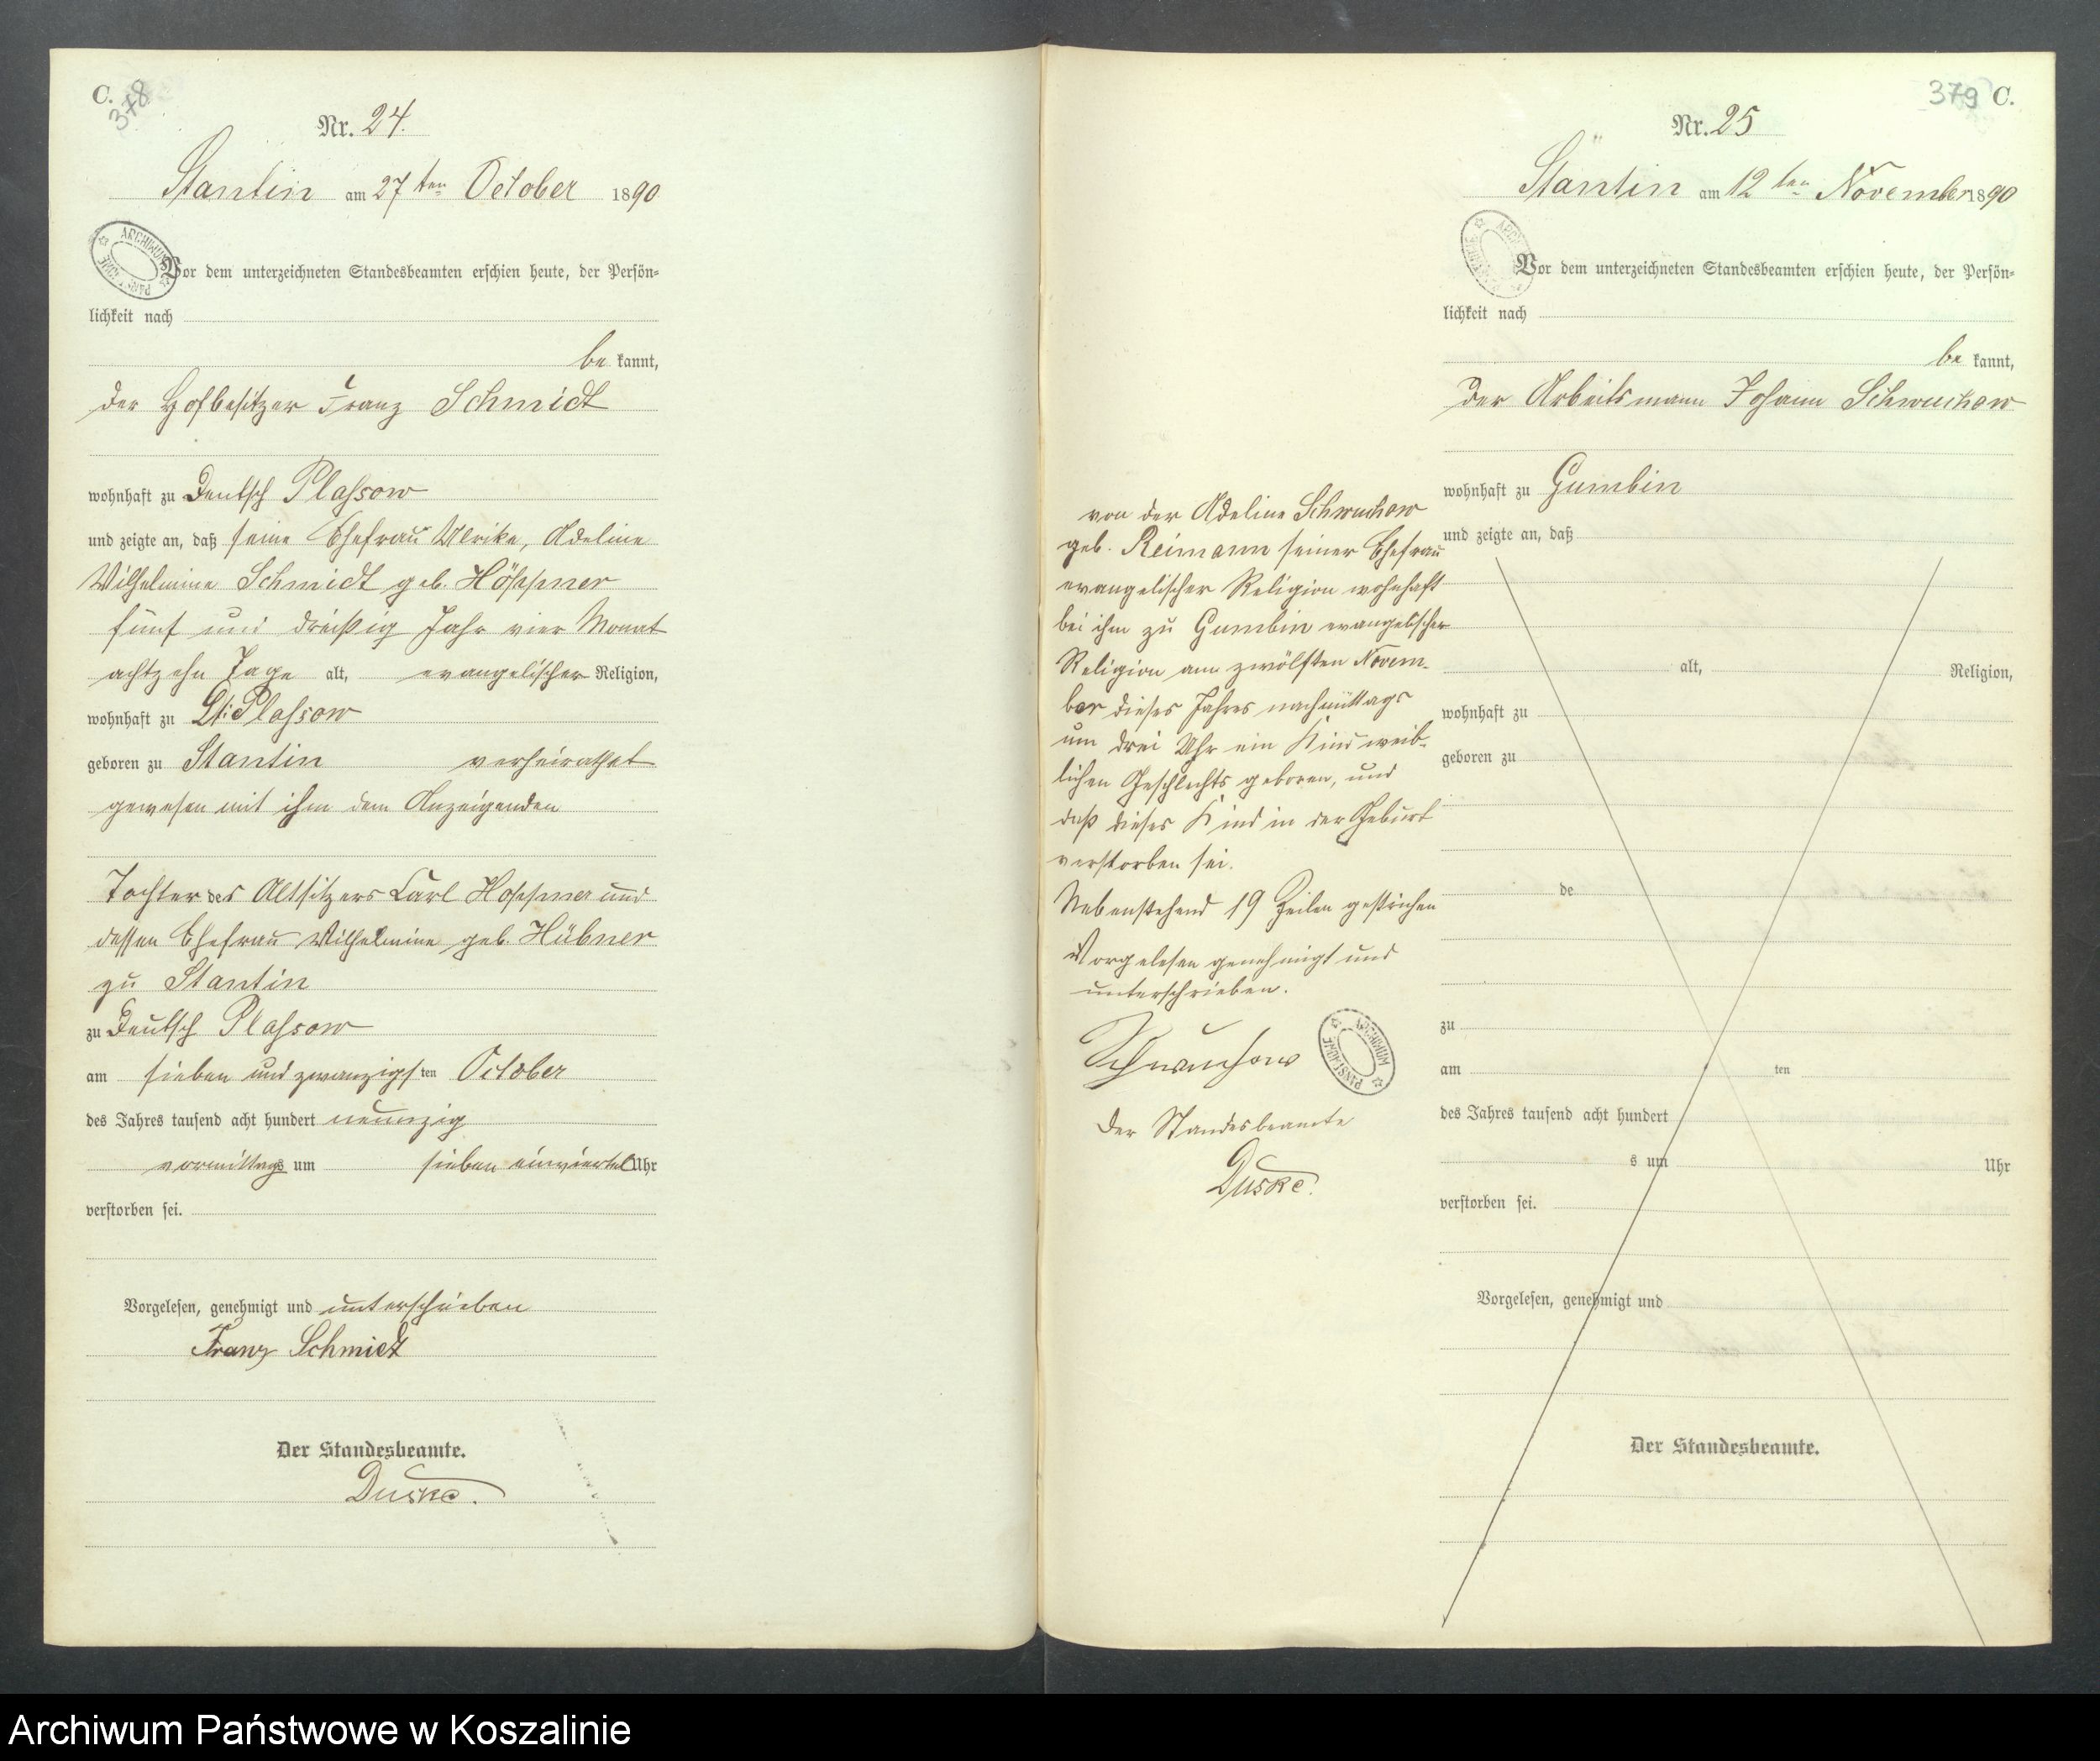 C.
378
Nr. 24.
Stantin am 27ten October 1890
ARCHIWUM PAŃSTWOWE
Vor dem unterzeichneten Standesbeamten erschien heute, der Persön-
lichkeit nach
be kannt,
der Hofbesitzer Franz Schmidt
wohnhaft zu Deutsch Plassow
und zeigte an, daß seine Ehefrau Ulrike, Adeline
Wilhelmine Schmidt geb. Höppner
fünf und dreißig Jahr vier Monat
achtzehn Tage alt, evangelischer Religion,
wohnhaft zu Dt: Plassow
geboren zu Stantin verheirathet
gewesen mit ihm dem Anzeigenden
Tochter des Altsitzers Carl Höppner und
dessen Ehefrau Wilhelmine geb. Hübner
zu Stantin
zu Deutsch Plassow
am sieben und zwanzigsten October
des Jahres tausend acht hundert neunzig
vormittags um sieben einviertel Uhr
verstorben sei.
Vorgelesen, genehmigt und unterschrieben
Franz Schmidt
Der Standesbeamte.
Duske.
379 C.
Nr. 25
Stantin am 12ten November 1890
Vor dem unterzeichneten Standesbeamten erschien heute, der Persön-
lichkeit nach
be kannt,
der Arbeitsmann Johann Schwuchow
wohnhaft zu Gumbin
und zeigte an, daß
alt, Religion,
wohnhaft zu
geboren zu
de
zu
am ten
des Jahres tausend acht hundert
s um Uhr
verstorben sei.
Vorgelesen, genehmigt und
Der Standesbeamte.
von der Adeline Schwuchow
geb. Reimann seiner Ehefrau
evangelischer Religion wohnhaft
bei ihm zu Gumbin evangelischer
Religion am zwölften Novem-
ber dieses Jahres nachmittags
um drei Uhr ein Kind weib-
lichen Geschlechts geboren, und
daß dieses Kind in der Geburt
verstorben sei.
Nebenstehend 19 Zeilen gestrichen
Vorgelesen genehmigt und
unterschrieben.
Schwuchow
ARCHIWUM PAŃSTWOWE
Der Standesbeamte
Duske.
Archiwum Państwowe w Koszalinie